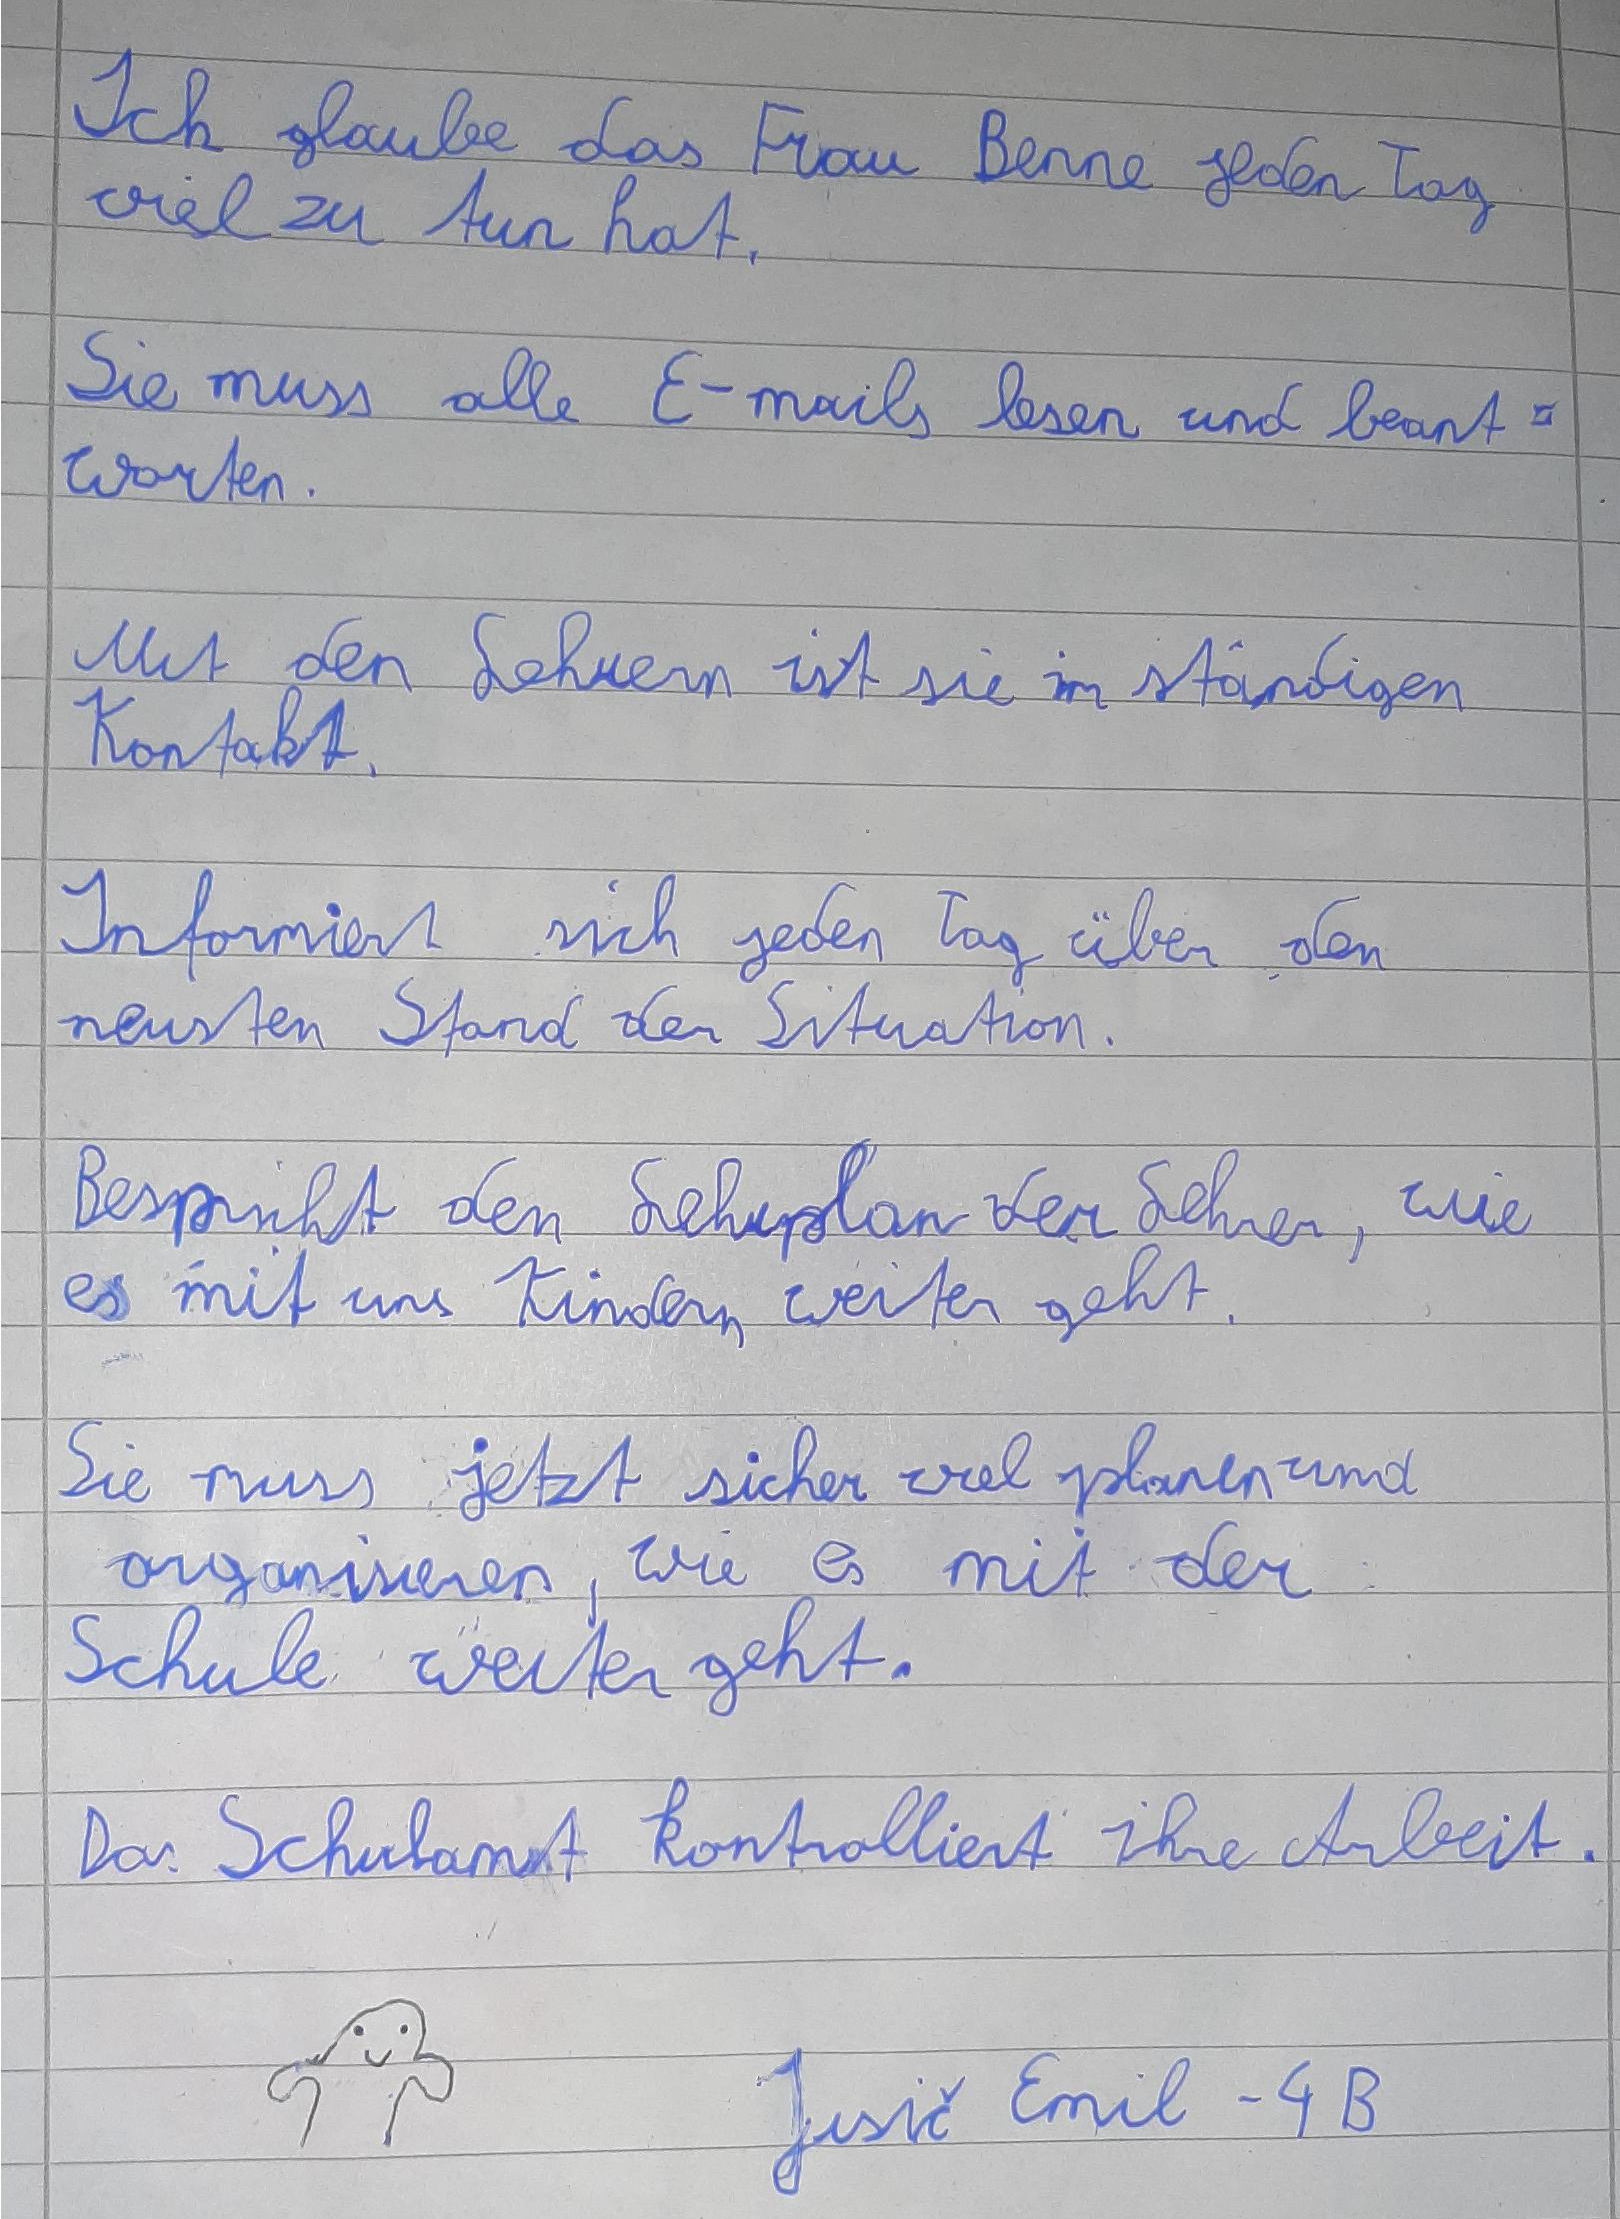 Ich glaube das Frau Benne jeden Tag
viel zu tun hat.
Sie muss alle E-mails lesen und beant=
worten.
Mit den Lehrern ist sie im ständigen
Kontakt.
Informiert sich jeden Tag über den
neusten Stand der Situation.
Bespricht den Lehrplan der Lehrer, wie
es mit uns Kindern weiter geht.
Sie muss jetzt sicher viel planen und
organisieren, wie es mit der
Schule weiter geht.
Das Schulamt kontrolliert ihre Arbeit.
Emil - 4B